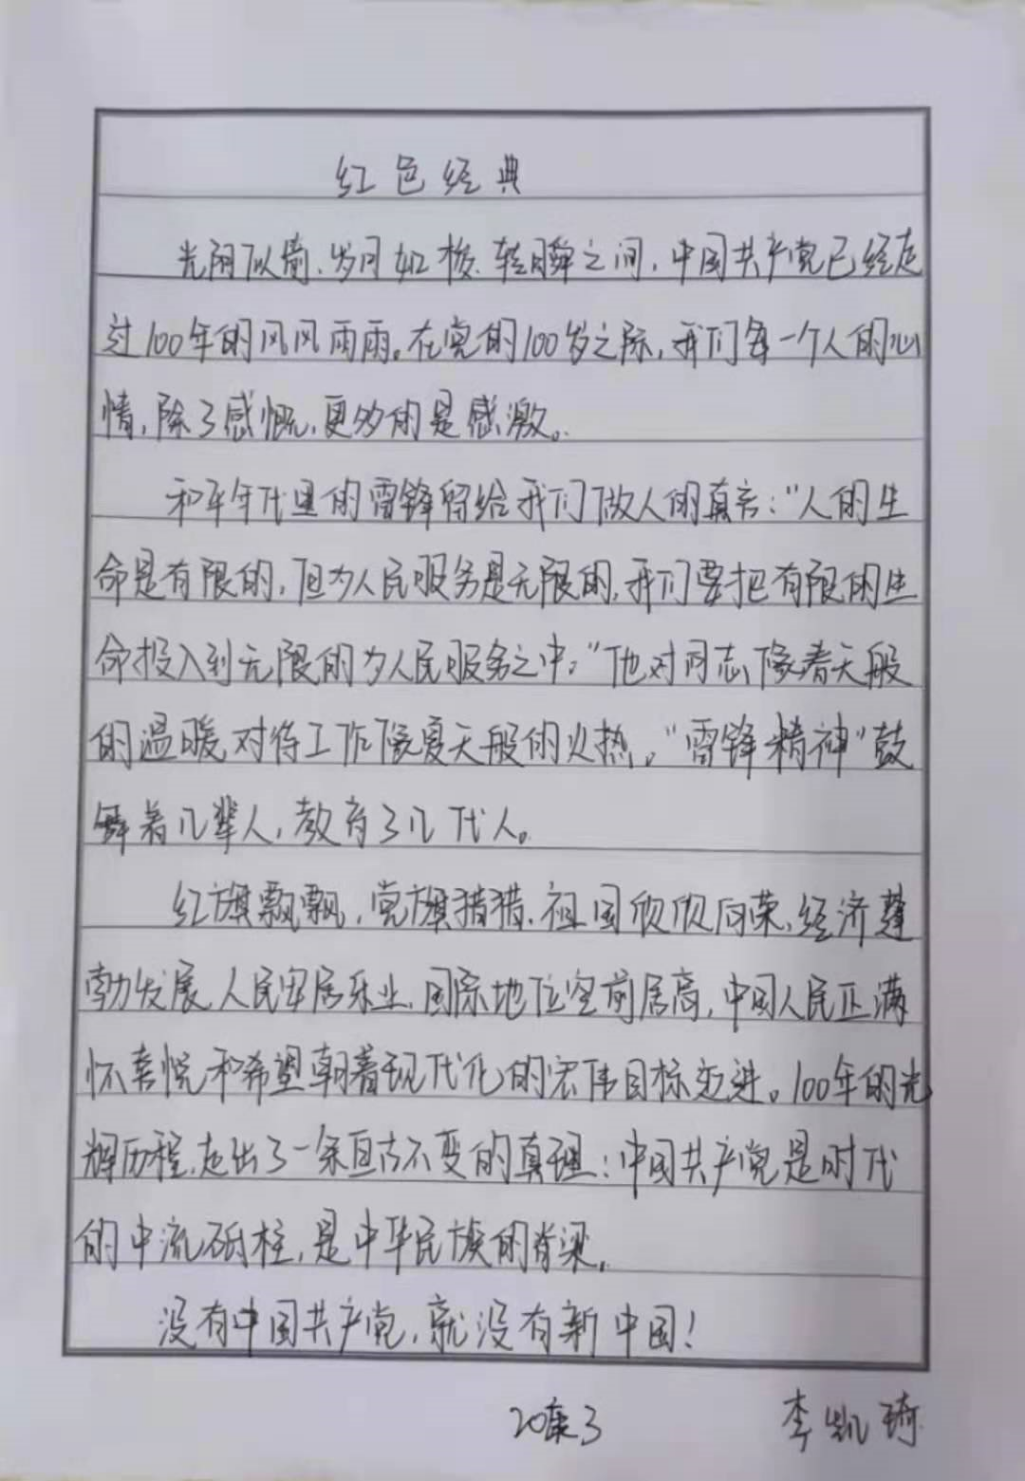 红色经典
光阴似箭、岁月如梭、转瞬之间，中国共产党已经走
过100年的风风雨雨。在党的100岁之际，我们每一个人的心
情，除了感慨，更多的是感激。
和平年代里的雷锋留给我们做人的真言："人的生
命是有限的，但为人民服务是无限的，我们要把有限的生
命投入到无限的为人民服务之中。"他对同志像春天般
的温暖，对待工作像夏天般的火热。"雷锋精神"鼓
舞着几辈人，教育了几代人。
红旗飘飘，党旗猎猎，祖国欣欣向荣，经济蓬
勃发展，人民牢居乐业，国际地位空前居高，中国人民正满
怀喜悦和希望朝着现代化的宏伟目标迈进。100年的光
辉历程，走出了一条亘古不变的真理：中国共产党是时代
的中流砥柱，是中华民族的脊梁。
没有中国共产党，就没有新中国！
20康3 李凯琦